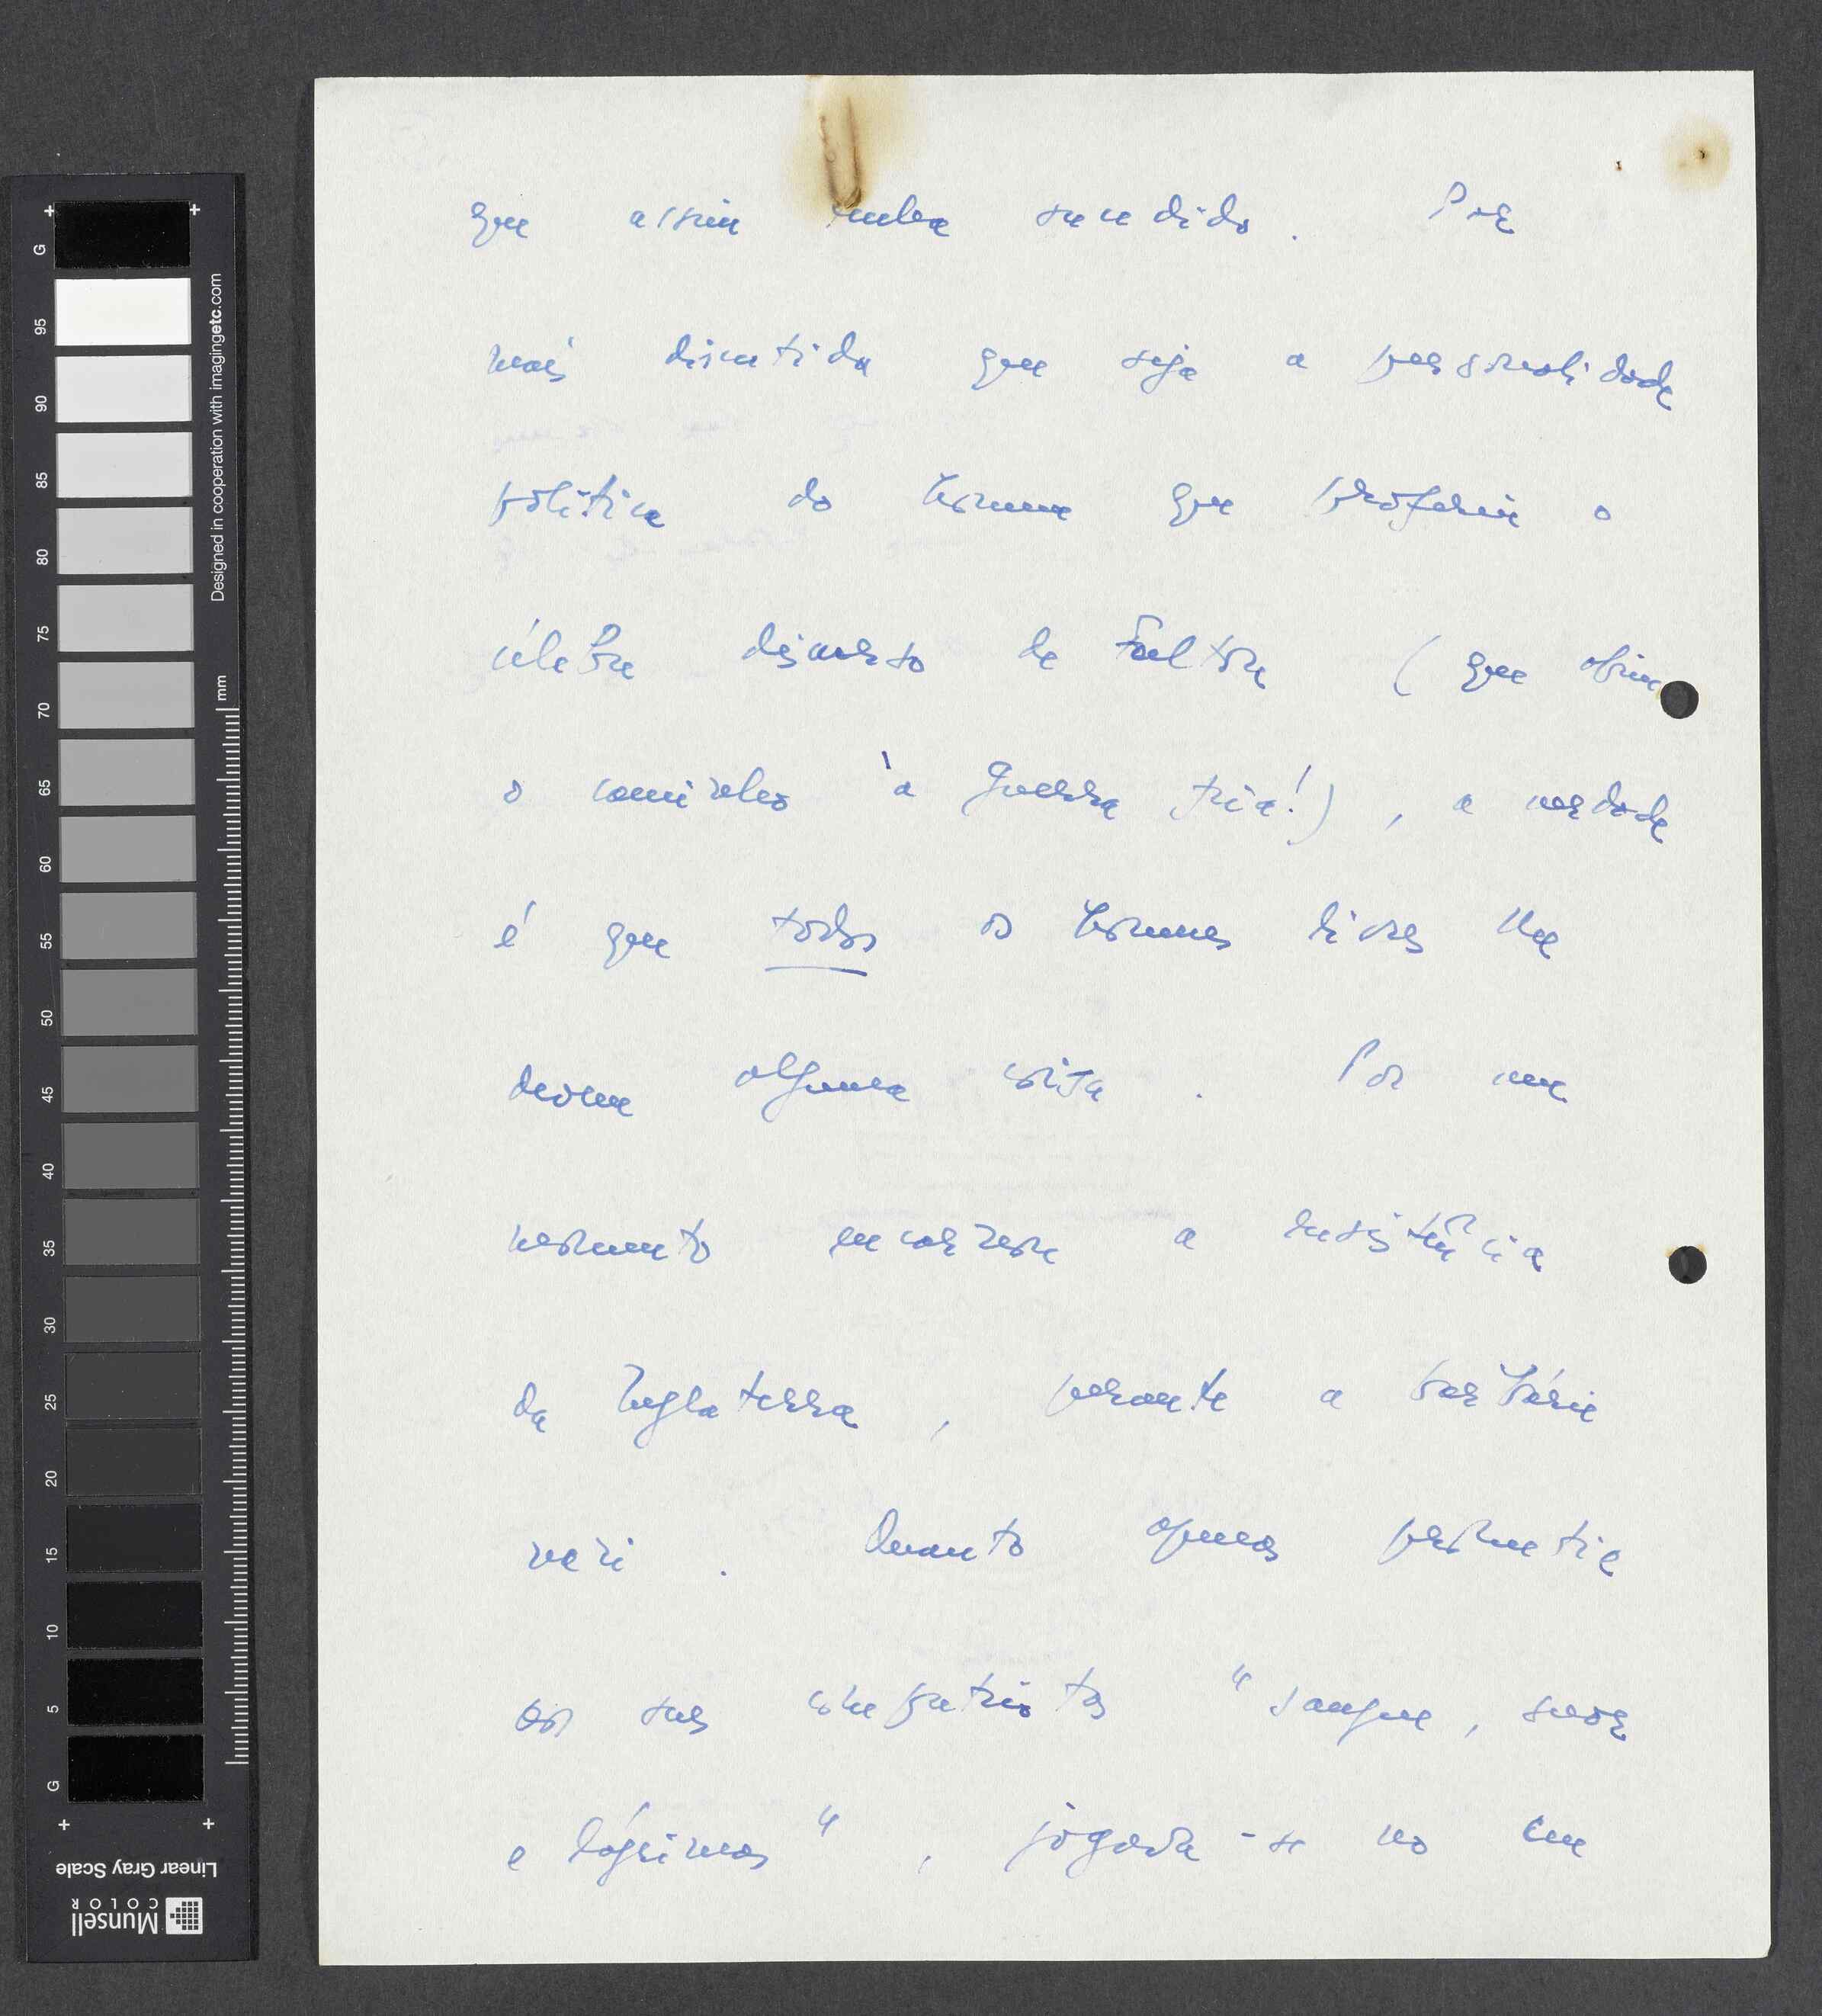 que assim tenha sucedido. Por
mais discutida que seja a personalidade
política do homem que proferiu o
célebre discurso de Fulton (que abriu
o caminho à guerra fria!), a verdade
é que todos os homens livres lhe
devem alguma coisa. Por um
momento encarnou a resistência
da Inglaterra, perante a barbárie
nazi. Quanto apenas prometia
aos seus compatriotas "sangue, suor
e lágrimas", jogava-se no em
G
95
90
85
80
75
70
65
60
55
50
45
40
35
30
25
20
15
10
5
G
mm
Designed in cooperation with imagingetc.com
Linear Gray Scale
Munsell
COLOR